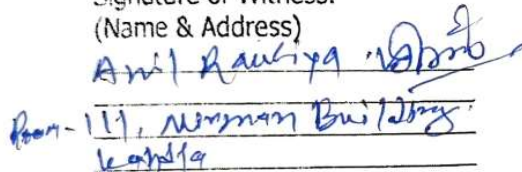 Signature of Witness:
(Name & Address)
Anil
Room-111, Nirman Building
Kandla